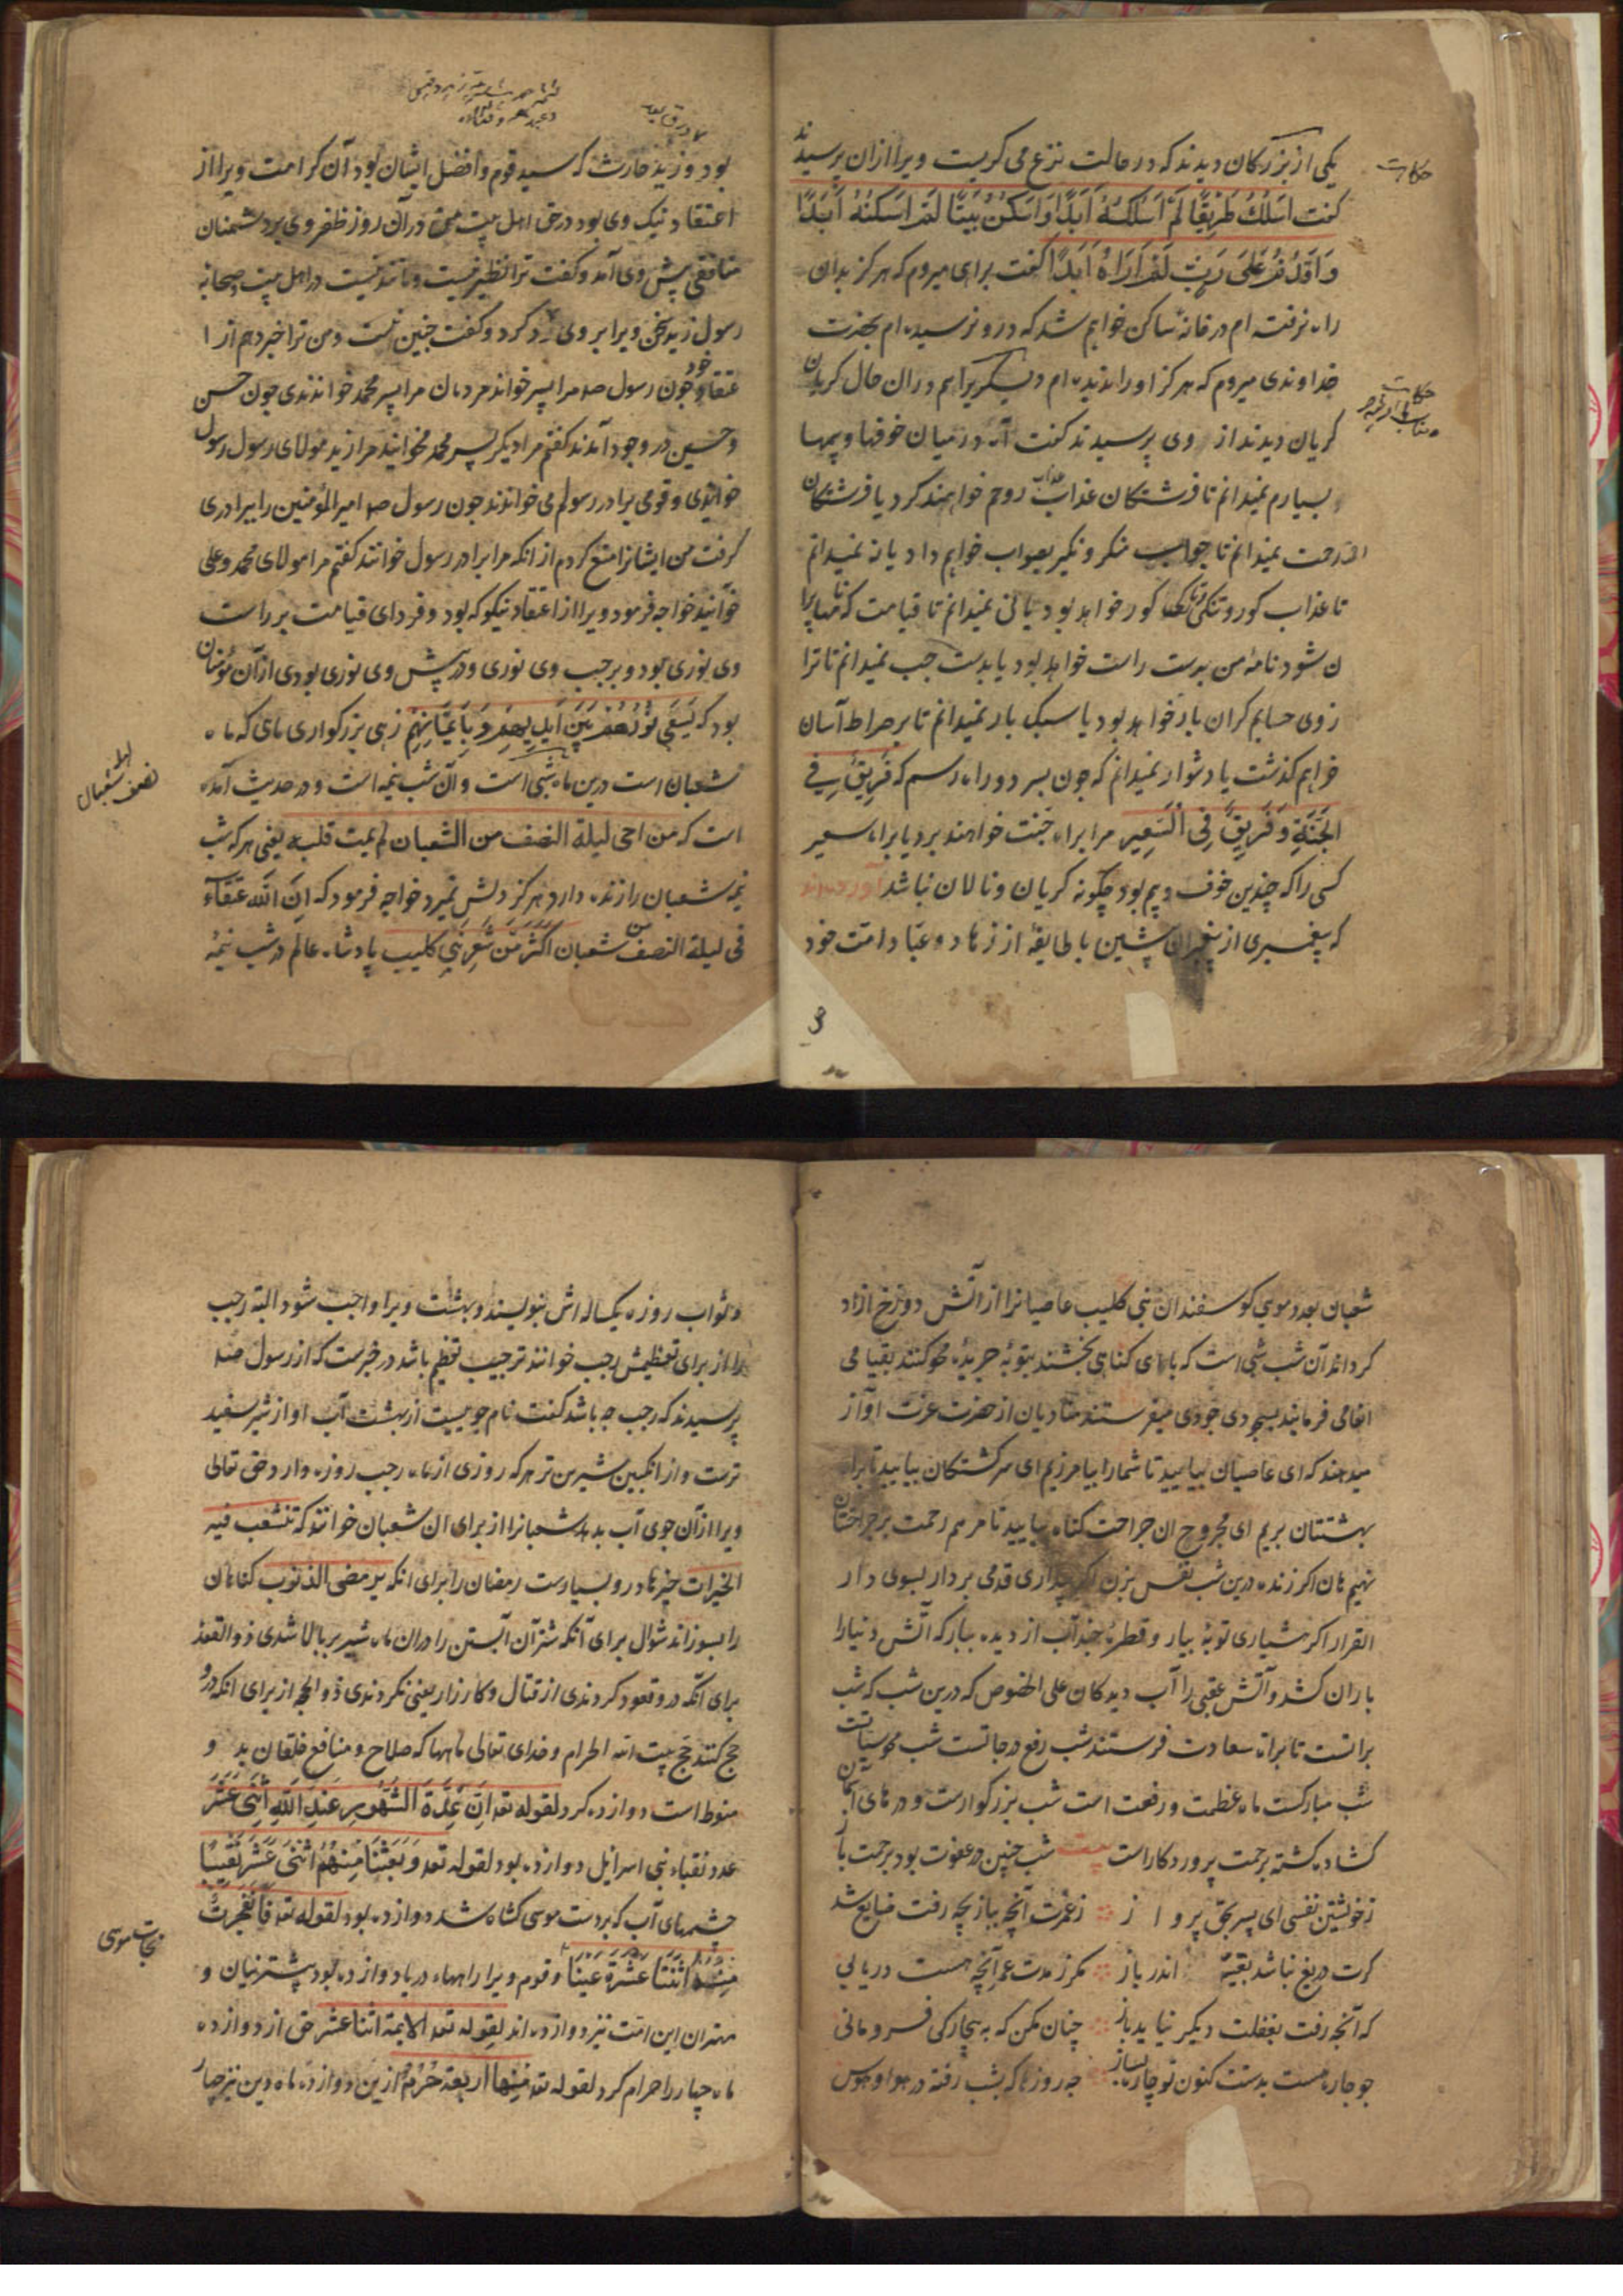 یکی از بزرکان دیدند که در حالت نزع می کریست ویرا ازان پرسیدند
کفت اَسلُکُ طَرِیقًا لَم اَسلُکهُ اَبَدًا وَاَسکُنُ بَیتًا لَم اَسکُنهُ اَبَدًا
وَاَقدُمُ عَلَی رَبٍّ لَم اَرَاهُ اَبَدًا کفت براهی میروم که هرکز بدان
راه نرفته ام در خانهٔ ساکن خواهم شد که درو نرسیده ام بحضرت
خداوندی میروم که هرکز اورا ندیده ام دیگریرا هم دران حال کریان
کریان دیدند از وی پرسیدند کفت آه در میان خوفها و بیمها
بسیارم نمیدانم تا فرشتکان عذاب روحم خواهند کرد یا فرشتکان
رحمت نمیدانم تا جواب منکر و نکیر بصواب خواهم داد یا نه نمیدانم
تا عذاب کور و تنکی کور خواهد بود یا نی نمیدانم تا قیامت که
ن شود نامهٔ من بدست راست خواهد بود یا بدست چپ نمیدانم تا ترا
زوی حسابم کران بار خواهد بود یا سبک بار نمیدانم تا بر صراط آسان
خواهم کذشت یا دشوار نمیدانم که چون بسر دو راه رسم که فَرِیقٌ فِی
الجَنَّةِ وَ فَرِیقٌ فِی السَّعِیر مرا براه جنت خواهند برد یا براه سعیر
کسی را که چندین خوف و بیم بود چکونه کریان و نالان نباشد آورده اند
که پیغمبری از پیغمبران پیشین با طایفهٔ از زهاد و عبّاد امت خود
حکایت
حکایت
بود و زید حارث که سید قوم و افضل ایشان بود آن کرامت ویرا از
اعتقاد نیک وی بود در حق اهل بیت در آن روز ظفر وی بر دشمنان
منافقی پیش وی آمد و کفت ترا نظیر نیست و مانند نیست در اهل بیت و صحابه
رسول زید سخن ویرا بر وی رد کرد و کفت چنین نیست و من ترا خبر دهم از ا
عتقاد خود چون رسول صلعم مرا پسر خواند مردمان مرا پسر محمد خواندندی چون حسن
و حسین در وجود آمدند کفتم مرا دیکر پسر محمد مخوانید مرا زید مولای رسول رسول
خواندی و قومی برادر رسولم می خواندند چون رسول صلعم امیرالمؤمنین را ببرادری
کرفت من ایشانرا منع کردم از انکه مرا برادر رسول خوانند کفتم مرا مولای محمد و علی
خوانید خواجه فرمود ویرا از اعتقاد نیکو که بود و فردای قیامت بر راست
وی نوری بود و بر چپ وی نوری و در پیش وی نوری بودی از آن مؤمنان
بود که یَسعَی نُورُهُم بَینَ اَیدِیهِم وَ بِاَیمَانِهِم زهی بزرکواری ماهی که ماه
شعبان است درین ماه شبی است و آن شب نیمه است و در حدیث آمده
است که من احی لیلة النصف من الشعبان لم یمت قلبه یعنی هر که شب
نیمه شعبان را زنده دارد هرکز دلش نمیرد خواجه فرمود که اِنَّ اللّه عتقاء
فی لیلة النصف من شعبان اَکثَرُ مِن شَعرِ بَنِی کلیب پادشاه عالم در شب نیمهٔ
نصف شعبان
شعبان بعدد موی کوسفندان بنی کلیب عاصیانرا از آتش دوزخ ازاد
کرداند آن شب شبی است که بآهی کناهی بخشند بتوبهٔ جریدهٔ محو کنند بقیامی
انعامی فرمایند بسجودی جودی میفرستند منادیان از حضرت عزت آواز
میدهند که ای عاصیان بیایید تا شمارا بیامرزیم ای سرکشتکان بیایید تا براه
بهشتتان بریم ای مجروحان جراحت کناه بیایید تا مرهم رحمت بر جراحتتان
نهیم هان اکر زنده درین شب نفس بزن اکر بیداری قدمی بردار بسوی دار
القرار اکر هشیاری توبهٔ بیار و قطرهٔ چند آب از دیده ببار که آتش دنیا را
باران کشد و آتش عقبی را آب دیدکان علی الخصوص که درین شب که شب
براتست تا براة سعادت فرستند شب رفع درجاتست شب محو سیآتست
شب مبارکست ماه عظمت و رفعت است شب بزرکوارست و درهای آسمان
کشاده کشته برحمت پروردکار است بیت شب چنین در عفوت بود برحمت باز
زخوشتین نفسی ای پسر بحق پرداز زعمرت آنچه ببازیچه رفت ضایع شد
کرت دریغ نباشد بقیهٔ اندر یاز مکر ز مدت عمر آنچه هست دریابی
که آنچه رفت بغفلت دیکر نیاید باز چنان مکن که به بیچارکی فرومانی
چو چاره هست بدستت کنون تو چاره بساز چه روزها که بشب رفته در هوا و هوس
و ثواب روزه یکساله اش بنویسند و بهشت ویرا واجب شود البته رجب
را از برای تعظیمش رجب خوانند ترجیب تعظیم باشد در خبرست که از رسول صلعم
پرسیدند که رجب چه باشد کفت نام جوییست از بهشت آب او از شیر سفید
ترست و از انکبین شیرین تر هر که روزی از ماه رجب روزه دارد حق تعالی
ویرا از آن جوی آب بدهد شعبانرا از برای ان شعبان خوانند که تتشعب فیه
الخیرات چیزها درو بسیارست رمضان را برای انکه یرمض الذنوب کناهان
را بسوزاند شوال برای آنکه شتران آبستن را دران ماه شیر بر بالا شدی ذوالقعد
برای آنکه درو قعود کردندی از قتال و کارزار یعنی نکردندی ذوالحجه از برای انکه درو
حج کنند حج بیت الله الحرام و خدای تعالی ماهها که صلاح و منافع خلقان بد و
منوطست دوازده کرد لقوله تعه اِنَّ عِدَّةَ الشُّهُورِ عِندَ اللّهِ اثنَی عَشَرَ
عدد نقباء بنی اسرائیل دوازده بود لقوله تعه وَ بَعَثنَا مِنهُمُ اثنَی عَشَرَ نَقِیبًا
چشمهای آب که بر دست موسی کشاده شد دوازده بود لقوله تعه فَانفَجَرَت
مِنهُ اثنَتَا عَشرَةَ عَینًا و قوم ویرا راهها در یا دوازده بود پیشترینان و
مهتران این امت نیز دوازده اند لقوله تعه الایمة اثنا عشر حق از دوازده
ماه چهار را حرام کرد لقوله تعه مِنها اربعة حُرُمٌ ازین دوازده ماه دین نیز چهار
موسی